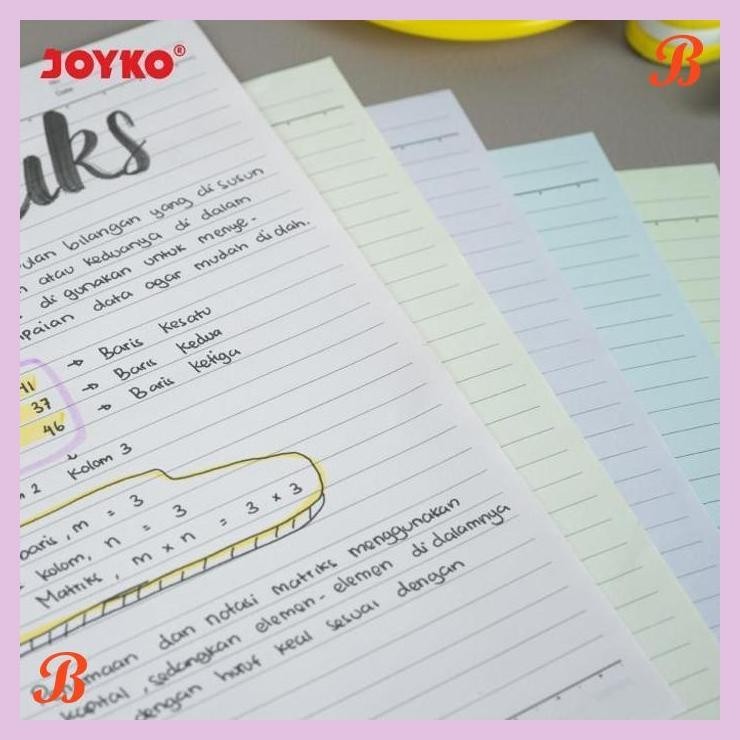 JOYKO®
B
No
Date
uks
ulan bilangan yang di susun
atau keduanya di dalam
di gunakan untuk menye-
paian data agar mudah di olah.
41 → Baris kesatu
37 → Baris kedua
46 → Baris ketiga
2 Kolom 3
baris, m = 3
kolom, n = 3
Matriks, m x n = 3 x 3
amaan dan notasi matriks menggunakan
kapital, sedangkan elemen-elemen di dalamnya
dengan huruf kecil sesuai dengan
B